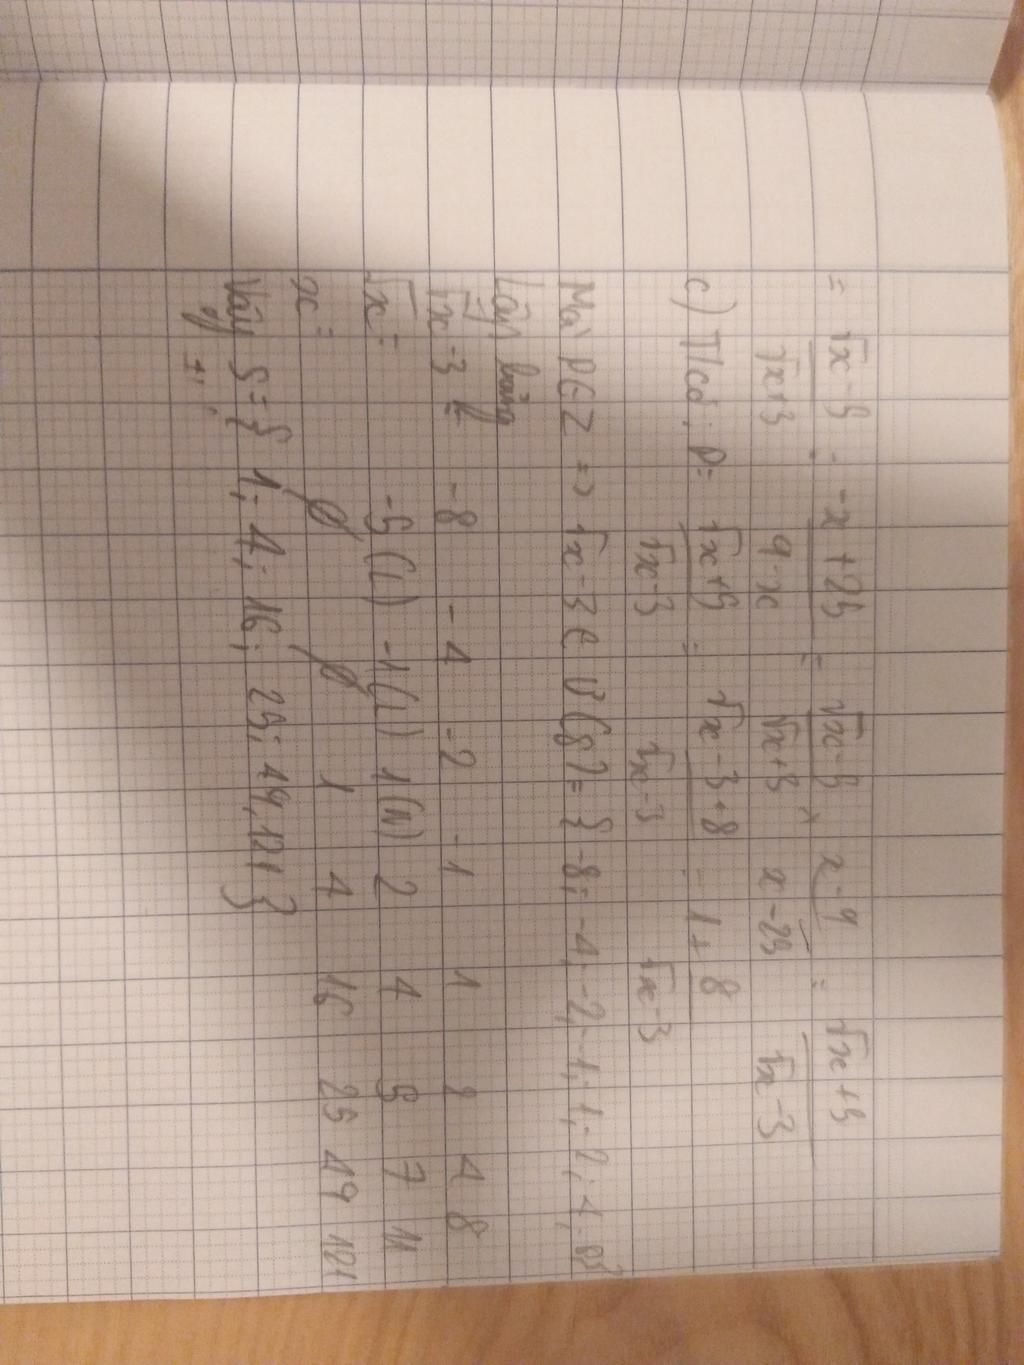 = (√x-5)/(√x+3) : (-x+25)/(9-x) = (√x-5)/(√x+3) × (x-9)/(x-25) = (√x+5)/(√x-3)
c) T/có: P= (√x+5)/(√x-3) = (√x-3+8)/(√x-3) = 1 + 8/(√x-3)
Mà P∈Z => √x-3 ∈ Ư(8)= {-8; -4, -2, -1, 1, 2; 4, 8}
Lập bảng
√x-3 -8 -4 -2 -1 1 2 4 8
√x = -5(L) -1(L) 1(n) 2 4 5 7 11
x = 1 4 16 25 49 121
Vậy S={ 1; 4; 16; 25; 49, 121 }